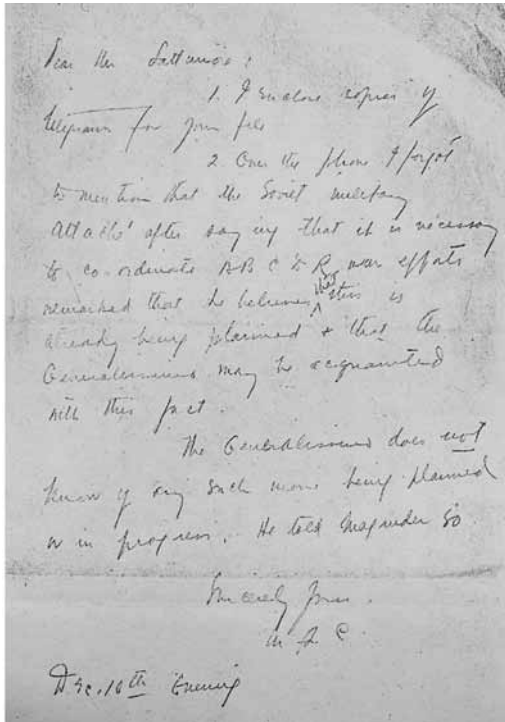 Dear Mr Lattimore:
1. I enclose copies of
telegrams for your file
2. Over the phone I forgot
to mention that the Soviet military
attaché after saying that it is necessary
to co-ordinate A B C D R war efforts
remarked that he believes that this is
already being planned & that the
Generalissimo may be acquainted
with this fact.
The Generalissimo does not
know of any such move being planned
or in progress. He told Magruder so
Sincerely yours.
M S C
Dec. 10th Evening